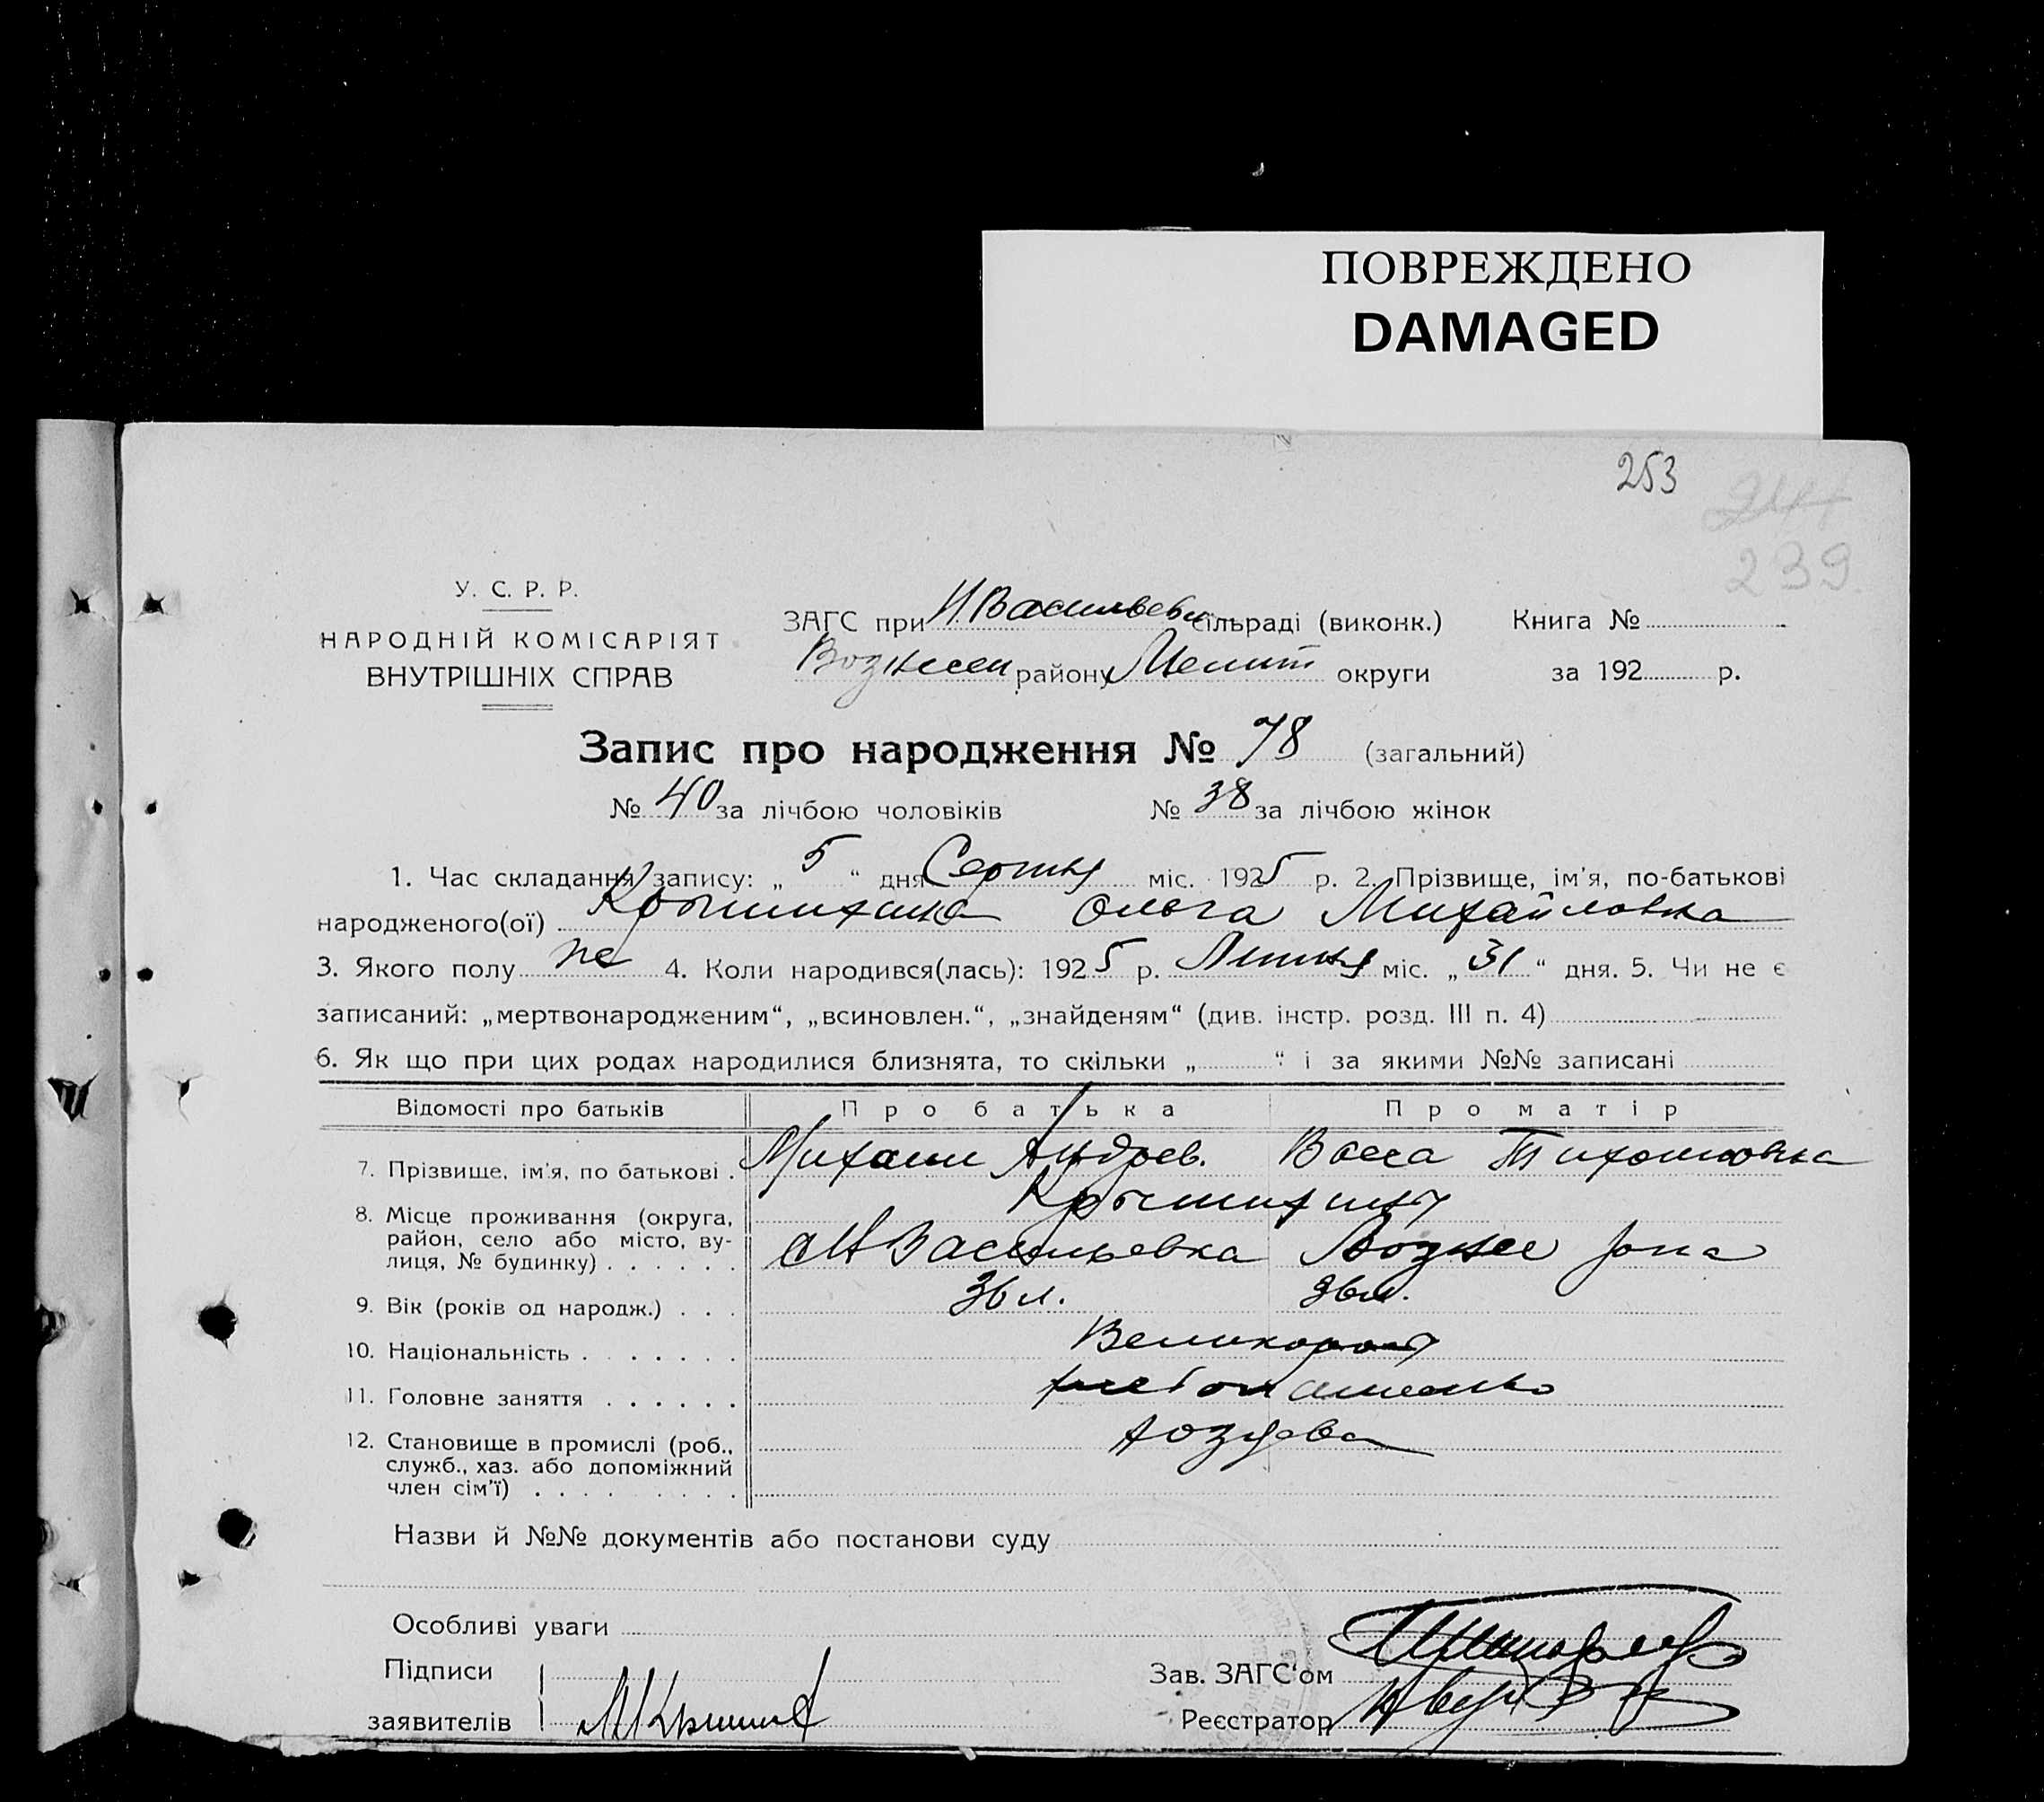 ПОВРЕЖДЕНО
DAMAGED
253
239
У. С. Р. Р.
НАРОДНІЙ КОМІСАРІЯТ
ВНУТРІШНІХ СПРАВ
ЗАГС при Н. Васильевк сільраді (виконк.) Книга №
Вознесен району Мелит округи за 192 р.
Запис про народження № 78 (загальний)
№ 40 за лічбою чоловіків № 38 за лічбою жінок
1. Час складання запису: „ 5 “ дня Серпня міс. 1925 р. 2. Прізвище, ім'я, по-батькові
народженого(ої) Ольга Михайловна
3. Якого полу 4. Коли народився(лась): 1925 р. Липня міс. „ 31 “ дня. 5. Чи не є
записаний: „мертвонародженим“, „всиновлен.“, „знайденям“ (див. інстр. розд. III п. 4)
6. Як що при цих родах народилися близнята, то скільки „ “ і за якими №№ записані
Відомості про батьків Про батька Про матір
7. Прізвище, ім'я, по батькові . Михаил Андрев. Васса Тихоновна
8. Місце проживання (округа,
район, село або місто, ву-
лиця, № будинку) . . . . . . Васильевка
9. Вік (років од народж.) . . . 36 л. 36 л.
10. Національність . . . . . . .
11. Головне заняття . . . . . .
12. Становище в промислі (роб.,
служб., хаз. або допоміжний
член сім'ї) . . . . . . . . .
Назви й №№ документів або постанови суду
Особливі уваги
Підписи
заявителів
Зав. ЗАГС‘ом
Реєстратор